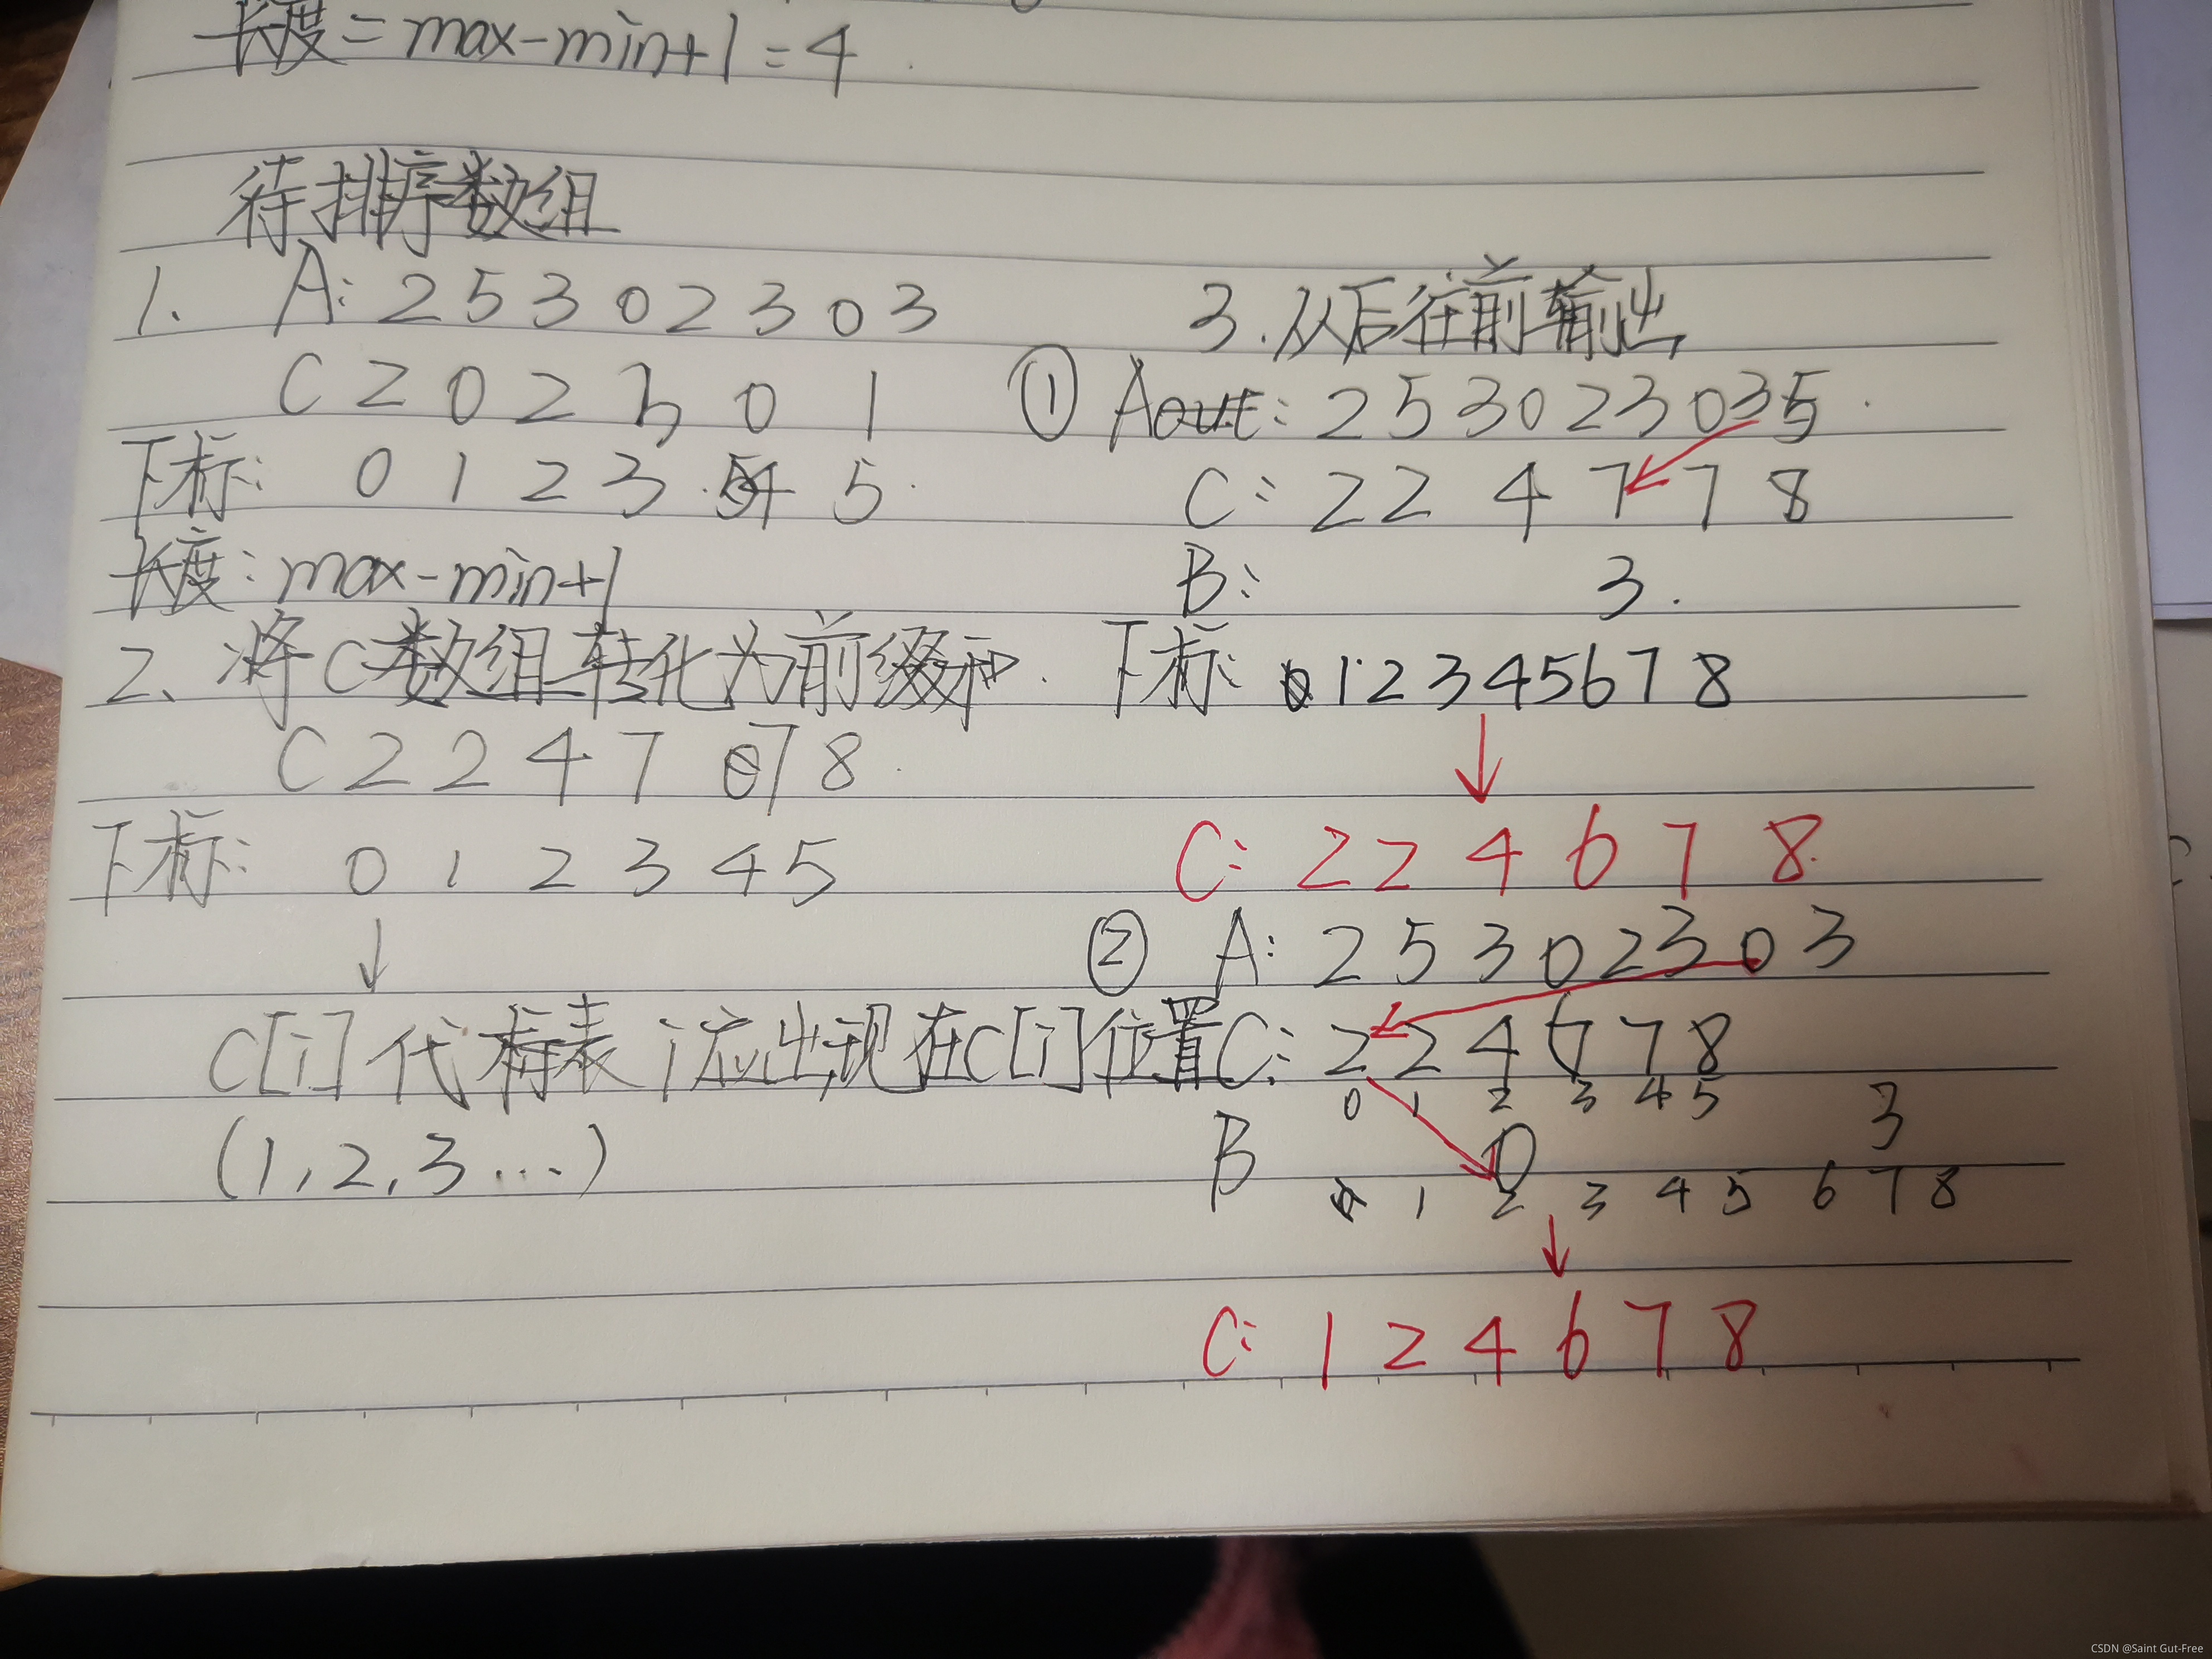 长度=max-min+1=4
待排序数组
1. A: 2 5 3 0 2 3 0 3
C 2 0 2 3 0 1
下标: 0 1 2 3 4 5
长度: max-min+1
2、将C数组转化为前缀和.
C 2 2 4 7 7 8
下标: 0 1 2 3 4 5
↓
C[i]代表i应出现在C[i]位置
(1,2,3...)
3.从后往前输出
① Aout: 2 5 3 0 2 3 0 3 5
C: 2 2 4 7 7 8
B: 3.
下标: 0 1 2 3 4 5 6 7 8
↓
C: 2 2 4 6 7 8
② A: 2 5 3 0 2 3 0 3
C: 2 2 4 6 7 8
0 1 2 3 4 5
B 0 3
1 2 3 4 5 6 7 8
↓
C: 1 2 4 6 7 8
CSDN @Saint Gut-Free